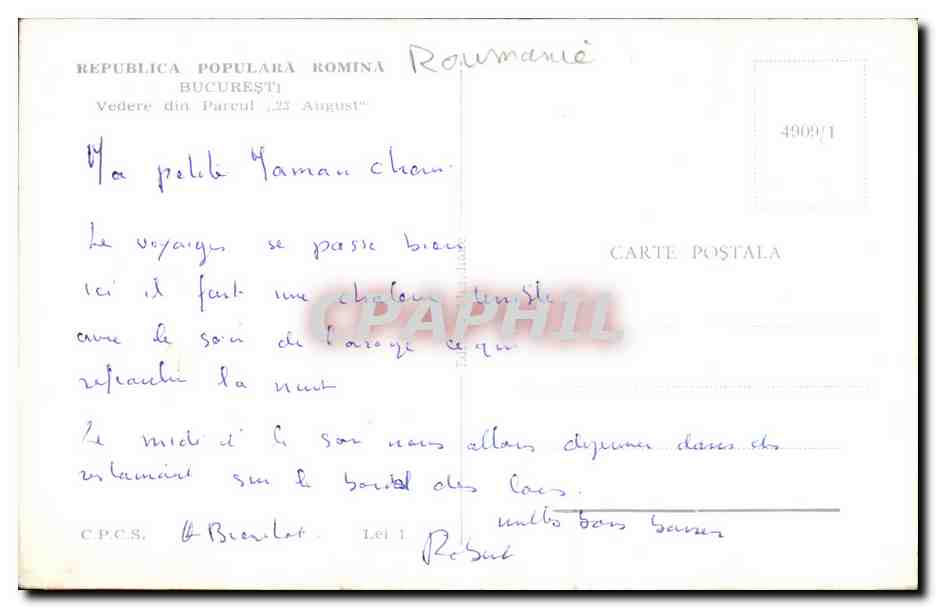 REPUBLICA POPULARĂ ROMÎNĂ
BUCUREŞTI
Vedere din Parcul „23 August”
Roumanie
4909/1
CARTE POŞTALĂ
Ma petite Maman
Le voyages se passe bien
ici il fait une chaleur terrible
avec le soir de l'orage ce qui
la nuit
Le midi et le soir nous allons dejeuner dans des
restaurant sur le bord des lacs.
milles bons baisers
C.P.C.S.
Lei 1
Robert
CPAPHIL